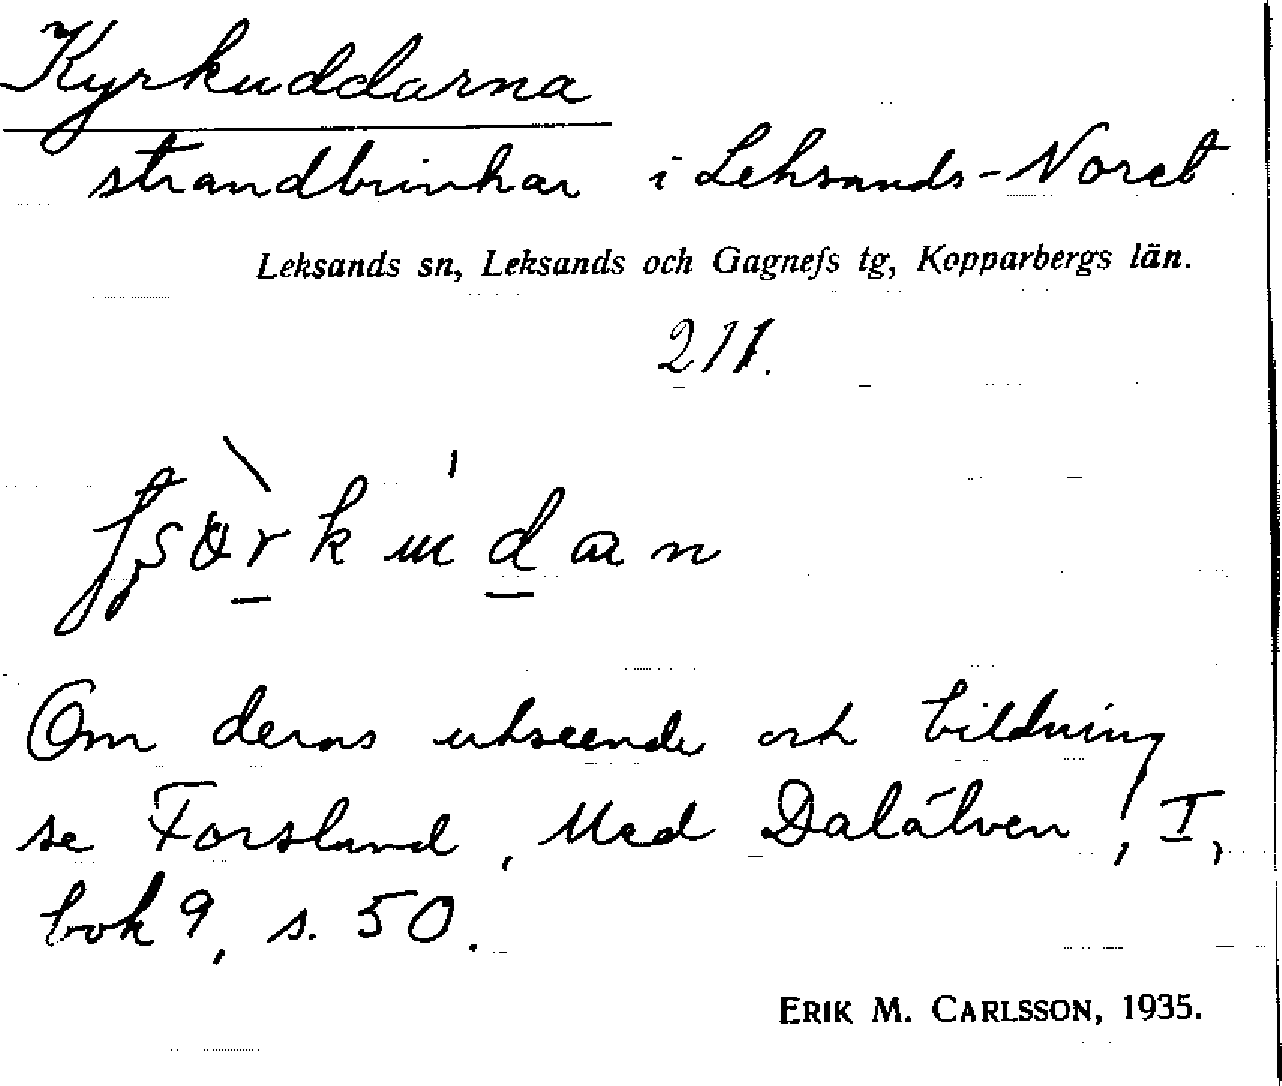 Kyrkuddarna
strandbrinkar i Leksands-Noret
Leksands sn, Leksands och Gagnefs tg, Kopparbergs län.
211.
Om deras utseende och bildning
se Forslund, Med Dalälven, I,
bok 9, s. 50.
ERIK M. CARLSSON, 1935.